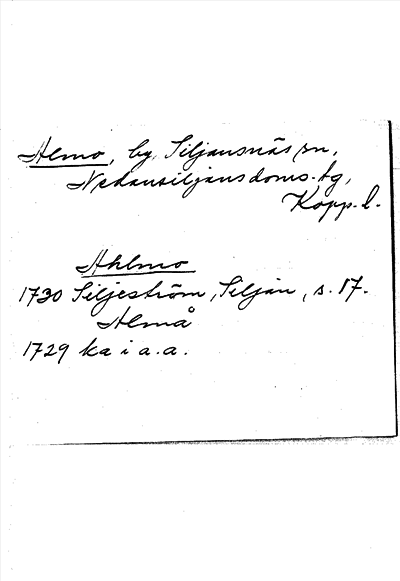 Almo, by, Siljansnäs sn,
Nedansiljans doms.tg,
Kopp. l.
Ahlmo
1730 Siljeström, Siljan, s. 17.
Almå
1729 ka i a.a.